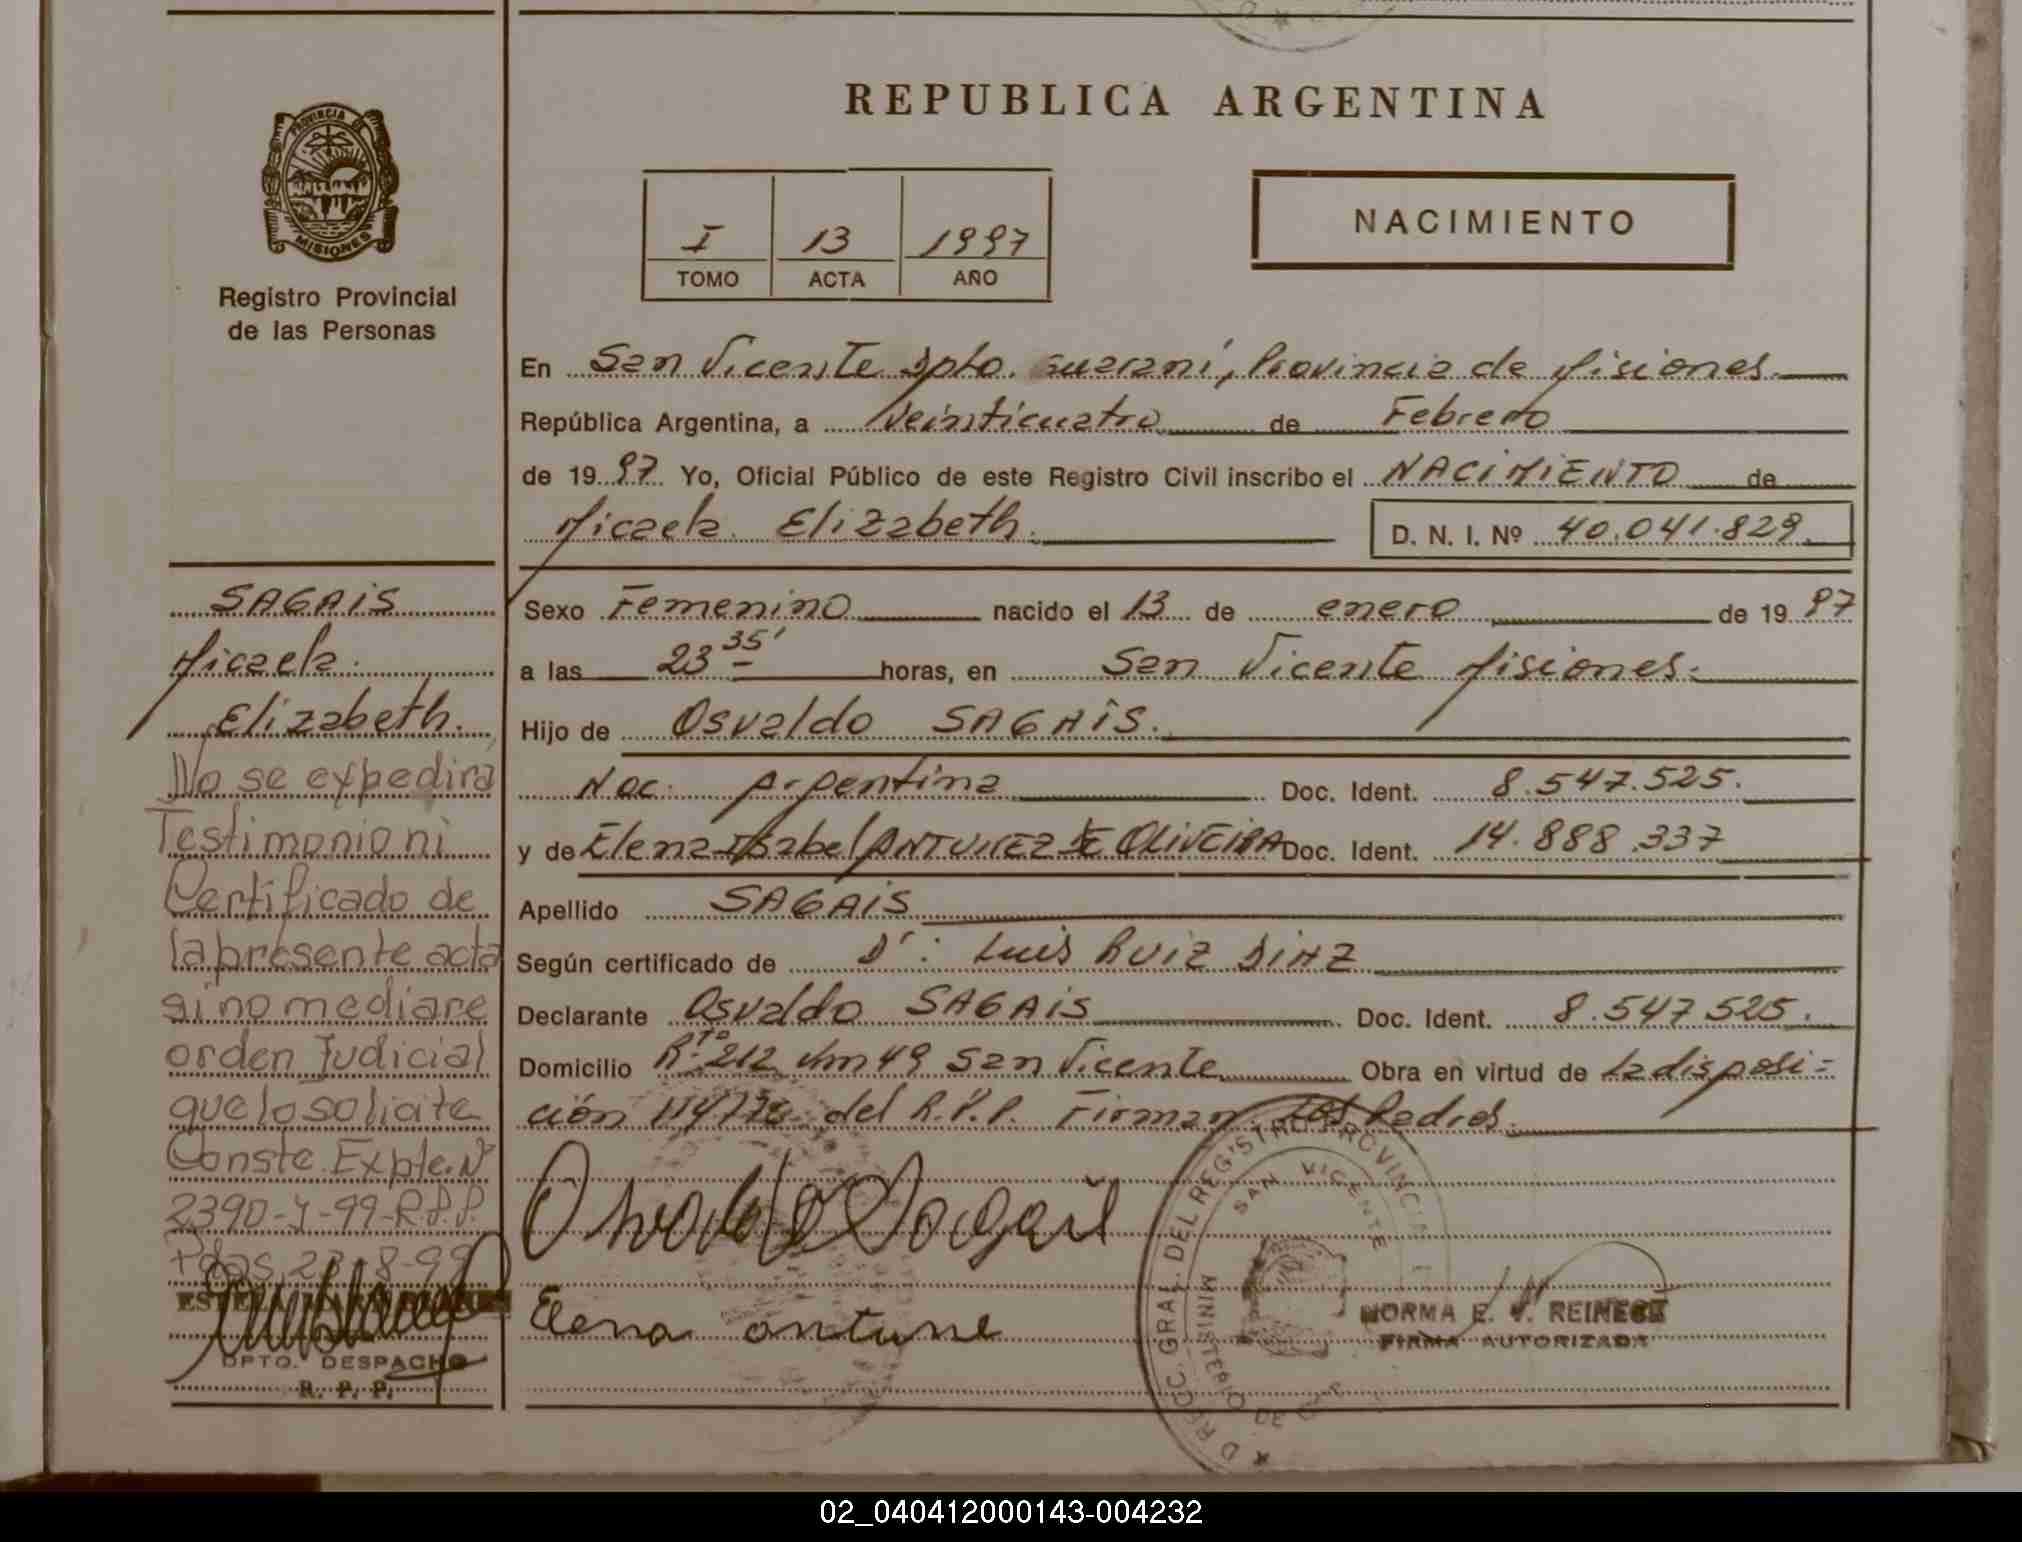 REPUBLICA ARGENTINA
PROVINCIA DE
MISIONES
Registro Provincial
de las Personas
I 13 1997
TOMO ACTA AÑO
NACIMIENTO
En San Vicente Dpto. Guaraní, Provincia de Misiones.
República Argentina, a Veinticuatro de Febrero
de 1997 Yo, Oficial Público de este Registro Civil inscribo el NACIMIENTO de
Micaela Elizabeth. D. N. I. Nº 40.041.829.
Sexo Femenino nacido el 13 de enero de 1997
a las 23 35' horas, en San Vicente Misiones.
Hijo de Osvaldo SAGAIS.
Nac. Argentina Doc. Ident. 8.547.525.
y de Elena Isabel ANTUNEZ DE OLIVEIRA Doc. Ident. 14.888.337
Apellido SAGAIS
Según certificado de Dr: Luis RUIZ DIAZ
Declarante Osvaldo SAGAIS Doc. Ident. 8.547.525.
Domicilio Rta 212 Km 49 San Vicente Obra en virtud de la disposi=
ción del R.P.P. Firman Los Padres.
Osvaldo Sagais
Elena antune
SAGAIS
Micaela
Elizabeth.
No se expedirá
Testimonio ni
Certificado de
la presente acta
si no mediare
orden Judicial
que lo solicite
Conste. Expte. Nº
2390-Y-99-R.P.P.
Pdas, 23-8-99
DPTO. DESPACHO
R. P. P.
DIRECC. GRAL. DEL REGISTRO PROVINCIAL
SAN VICENTE
MINISTERIO DE
NORMA E. V. REINECK
FIRMA AUTORIZADA
02_040412000143-004232